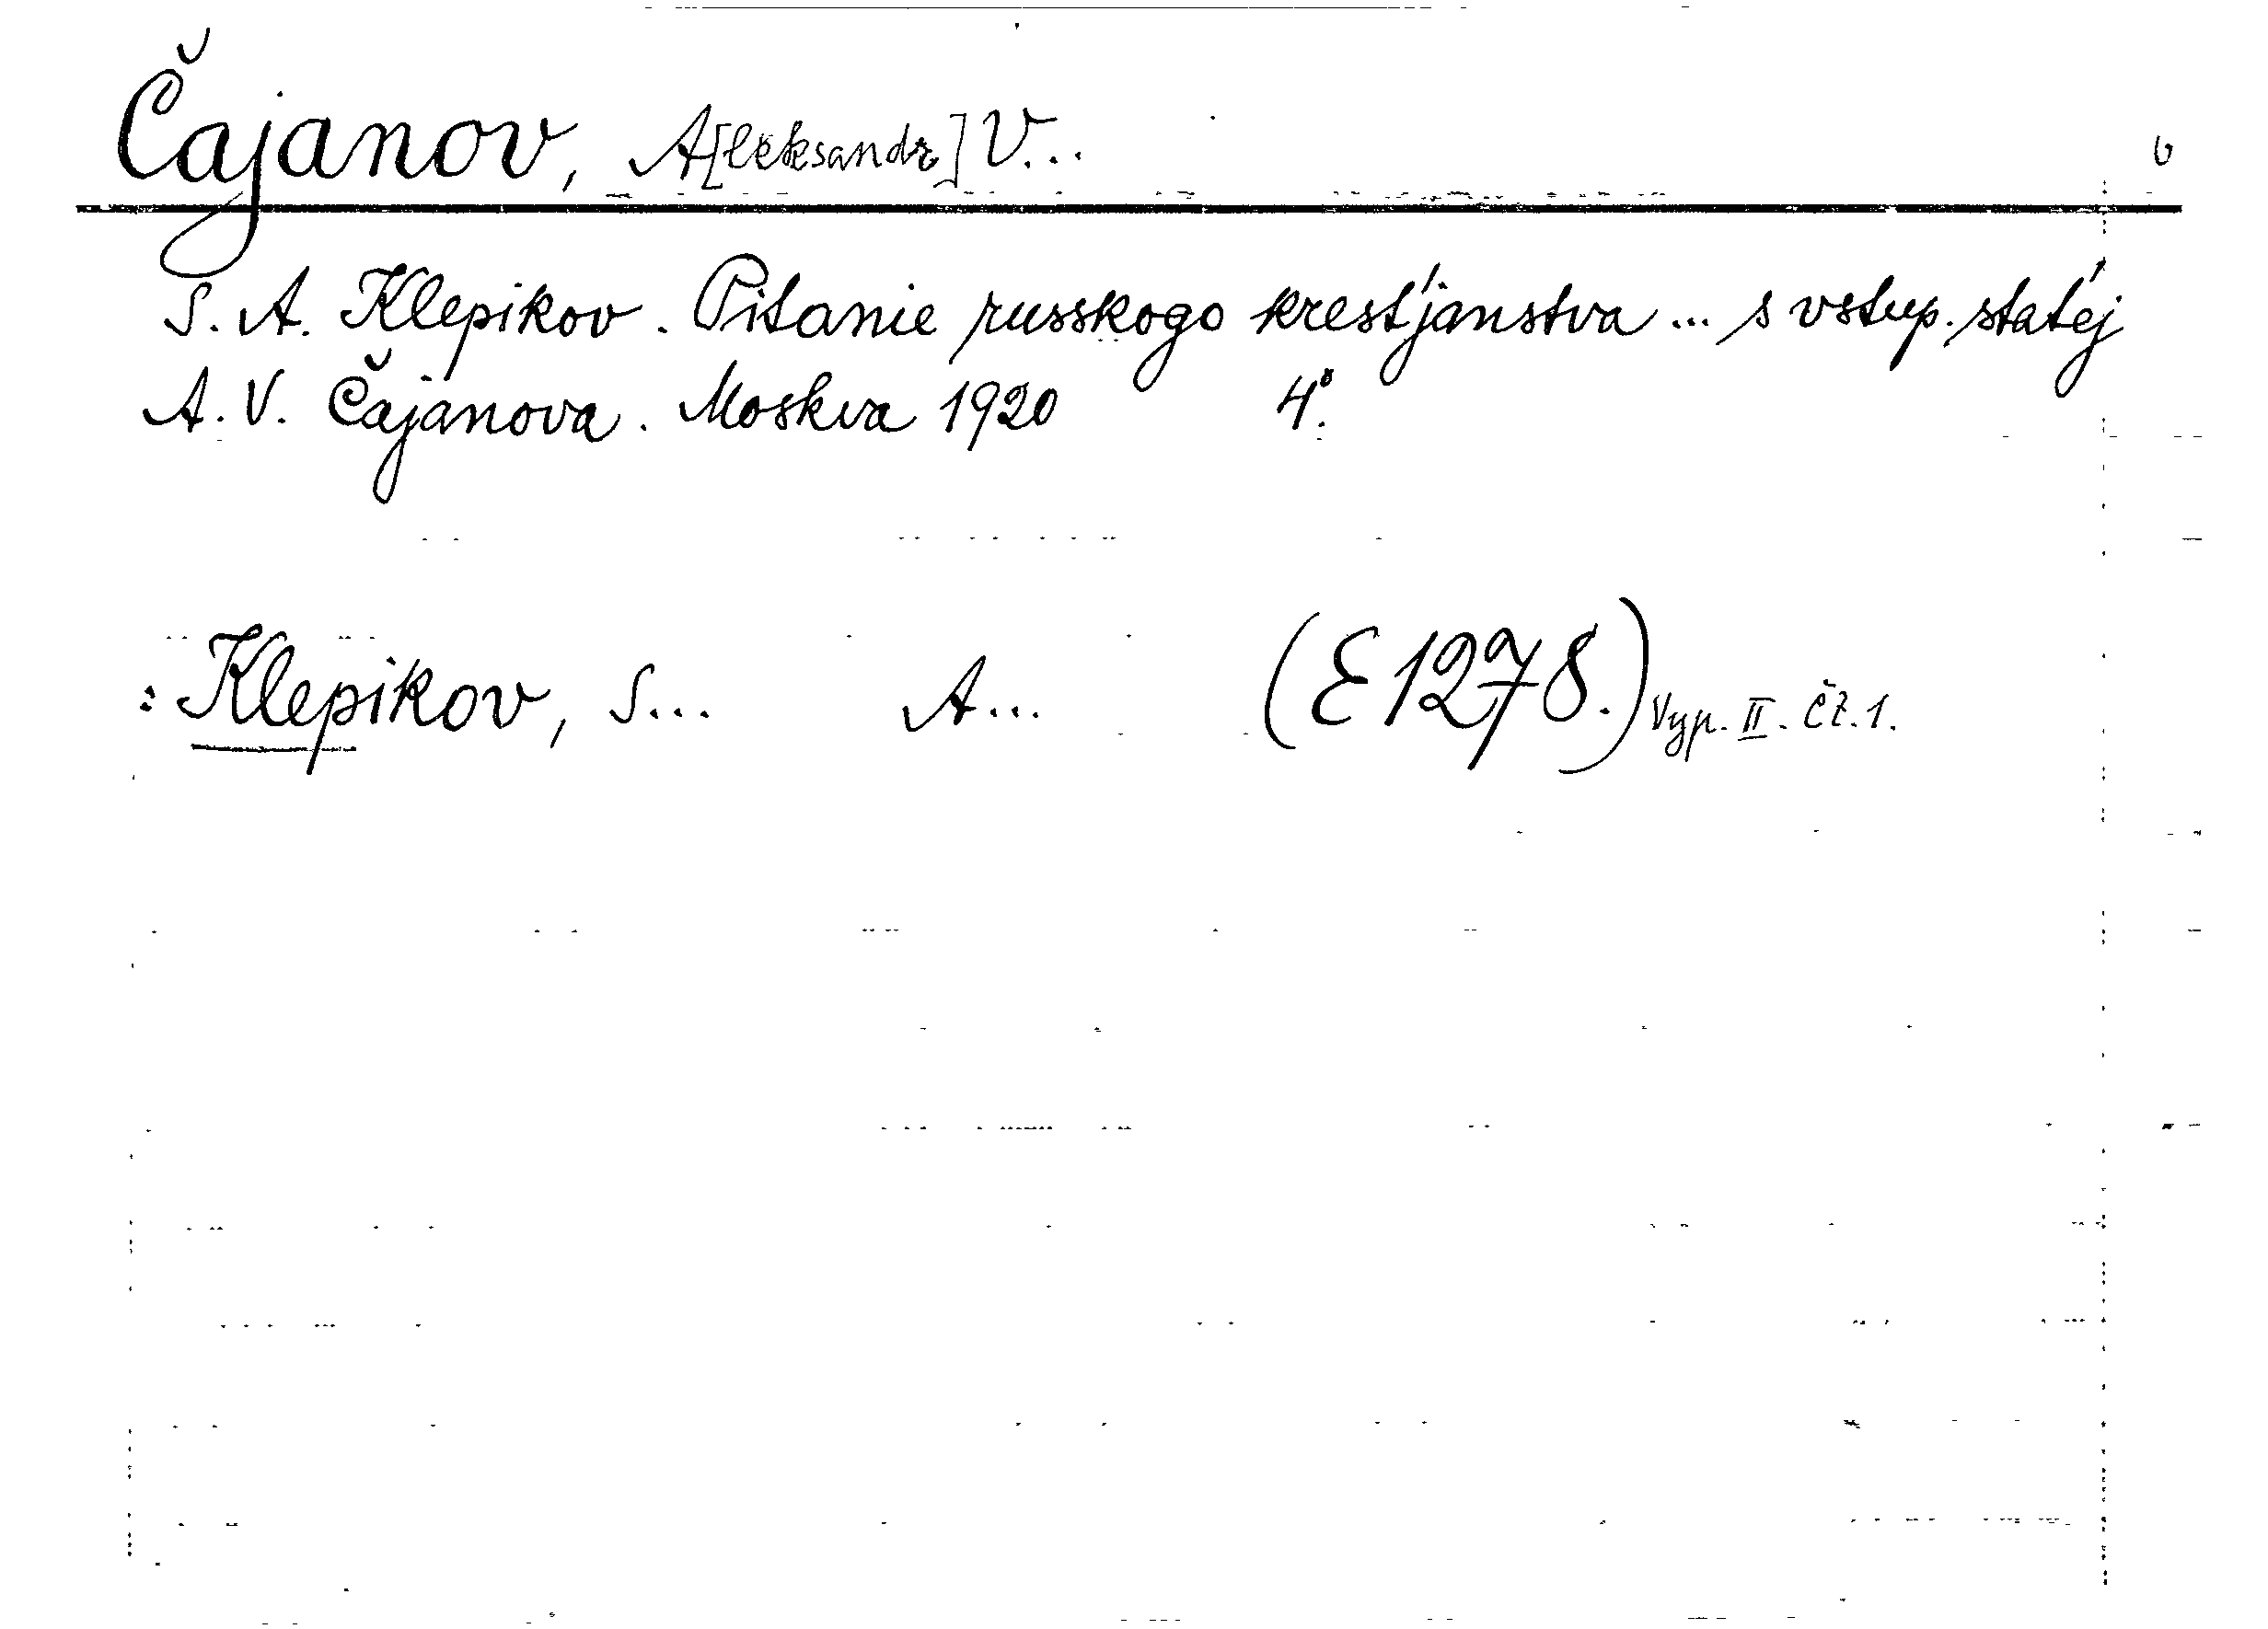 Čajanov, A[leksandr] V...
S. A. Klepikov. Pitanie russkogo krest'janstva ... s vstup. stat'ej
A. V. Čajanova. Moskva 1920 4°.
: Klepikov, S... A... (E 1278.) Vyp. II. čt. 1.